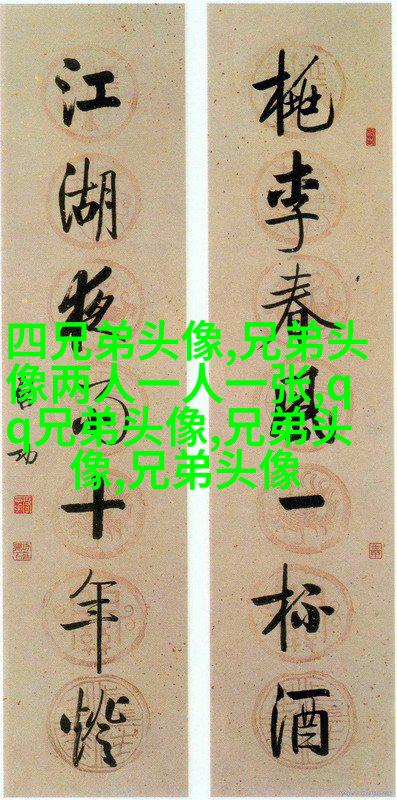 桃李春風一杯酒
江湖夜雨十年燈
启功
四兄弟头像,兄弟头
像两人一人一张,q
q兄弟头像,兄弟头
像,兄弟头像